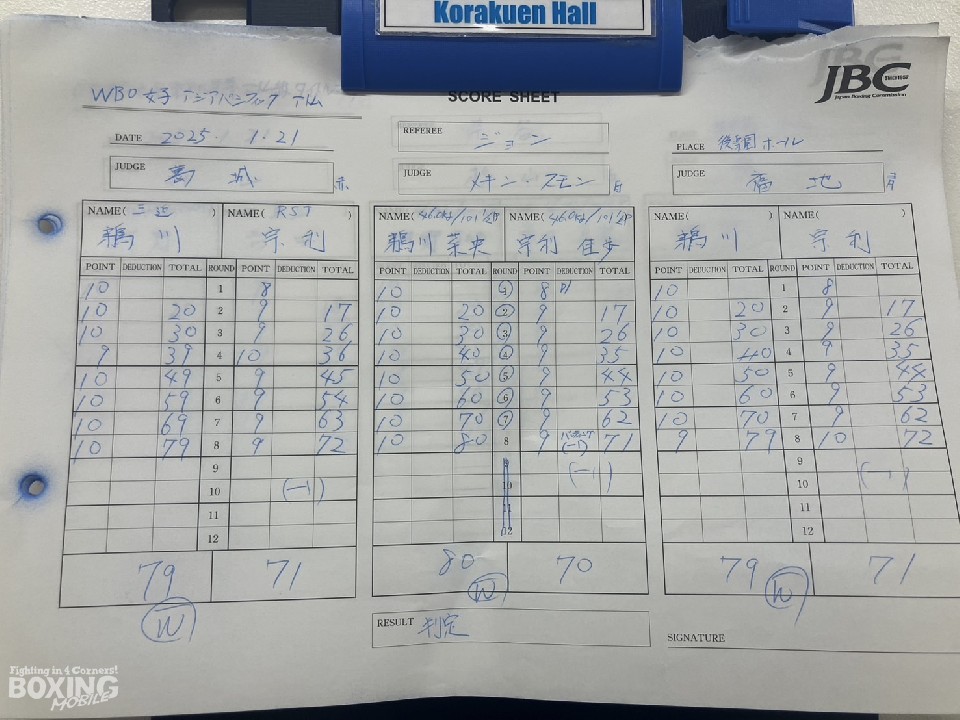 Korakuen Hall
JBC
Japan Boxing Commission
WBO女子アジアパシフィック アトム
SCORE SHEET
DATE 2025. 1. 21
REFEREE ジョン
PLACE 後楽園ホール
JUDGE 葛城 赤
JUDGE メキン・スモン 白
JUDGE 福地 青
NAME( 三迫 ) NAME( RST ) NAME( 46.0kg/101 1/2 P NAME( 46.0kg/101 1/2 P NAME( ) NAME( )
鵜川 宗利 鵜川菜央 宗利佳歩 鵜川 宗利
POINT DEDUCTION TOTAL ROUND POINT DEDUCTION TOTAL POINT DEDUCTION TOTAL ROUND POINT DEDUCTION TOTAL POINT DEDUCTION TOTAL ROUND POINT DEDUCTION TOTAL
10 1 8 10 1 8 D 10 1 8
10 20 2 9 17 10 20 2 9 17 10 20 2 9 17
10 30 3 9 26 10 30 3 9 26 10 30 3 9 26
9 39 4 10 36 10 40 4 9 35 10 40 4 9 35
10 49 5 9 45 10 50 5 9 44 10 50 5 9 44
10 59 6 9 54 10 60 6 9 53 10 60 6 9 53
10 69 7 9 63 10 70 7 9 62 10 70 7 9 62
10 79 8 9 72 10 80 8 9 (-1) 71 9 79 8 10 72
9 9 (-1) 9
10 (-1) 10 10 (-1)
11 11 11
12 12 12
79 71 80 70 79 71
W W W
RESULT 判定
SIGNATURE
Fighting in 4 Corners!
BOXING
MOBILE